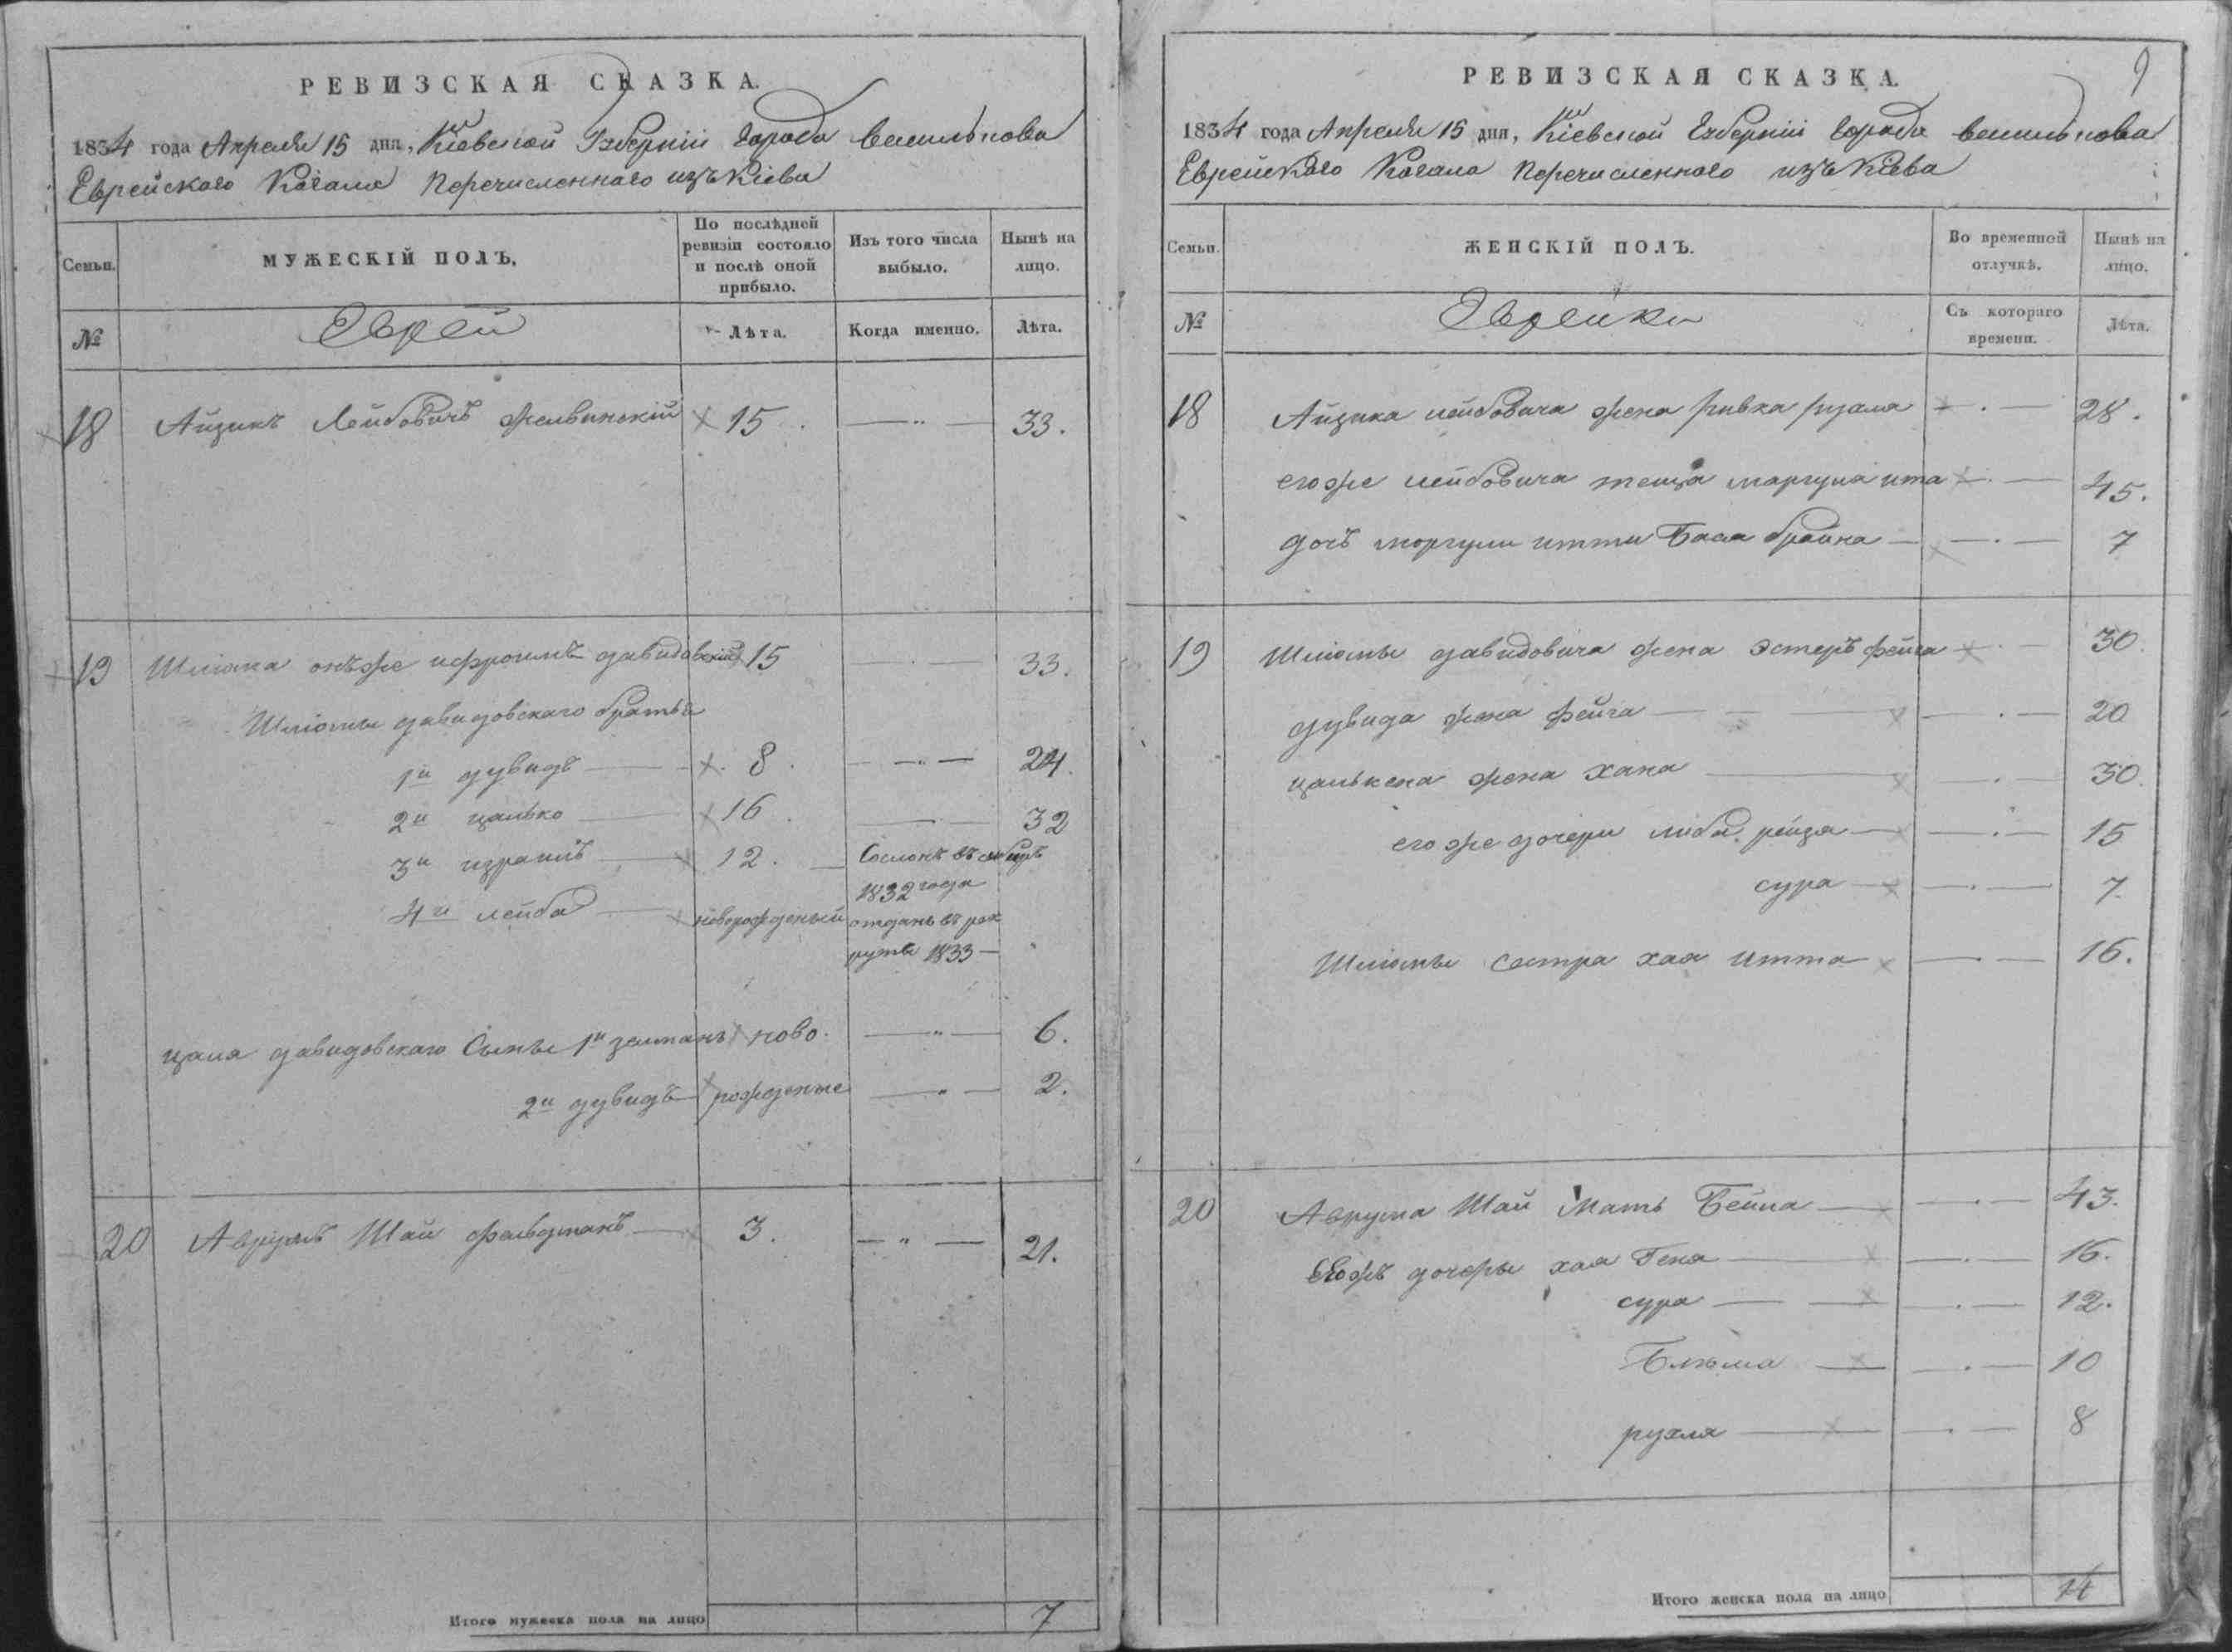 РЕВИЗСКАЯ СКАЗКА.
1834 года Апреля 15 дня, Кіевской Губерніи Города Василькова
Еврейского Кагала Перечисленного изъ Кіева
Семьи.
МУЖЕСКІЙ ПОЛЪ.
По послѣдней ревизіи состояло и послѣ оной прибыло.
Изъ того числа выбыло.
Нынѣ на лицо.
№
Еврей
Лѣта.
Когда именно.
Лѣта.
18 Айзикъ Лейбовичъ 15 — " — 33.
19 Шліома онъ же ифроимъ давидовскій 15 — · — 33.
Шліомы давидовскаго братья
1й дувидъ — 8. — " — 24.
2й цалько — 16. — · — 32
3й израиль — 12. — Сосланъ въ сибирь
1832 года
4й лейба — новорожденый отданъ въ рек
руты 1833 —
цаля давидовскаго Сыны 1й зелманъ ново. — " — 6.
2й дувидъ рожденые — " — 2.
20 Аврумъ Шай фельдманъ — 3. — " — 21.
Итого мужеска пола на лицо 7
9
РЕВИЗСКАЯ СКАЗКА.
1834 года Апреля 15 дня, Кіевской Губерніи Города Василькова
Еврейского Кагала Перечисленного изъ Кіева
Семьи.
ЖЕНСКІЙ ПОЛЪ.
Во временной отлучкѣ.
Нынѣ на лицо.
№
Еврейки
Съ котораго времени.
Лѣта.
18 Айзика лейбовича жена ривка рузаля — · — 28.
его же лейбовича теща маргуля ита — · — 45.
дочъ моргули итти Бася брайна — — · — 7
19 Шліомы давидовича жена эстеръ фейга — · — 30.
дувида жена фейга — — · — 20
цалькена жена хана — — · — 30.
его же дочери либа рейза — — · — 15
сура — — · — 7.
Шліомы сестра хая итта — · — 16.
20 Аврума Шай Мать Бейла — — · — 43.
Егожъ дочеры хая Геня — — · — 16.
сура — — — · — 12.
Блюма — — · — 10
рухля — — · — 8
Итого женска пола на лицо 14